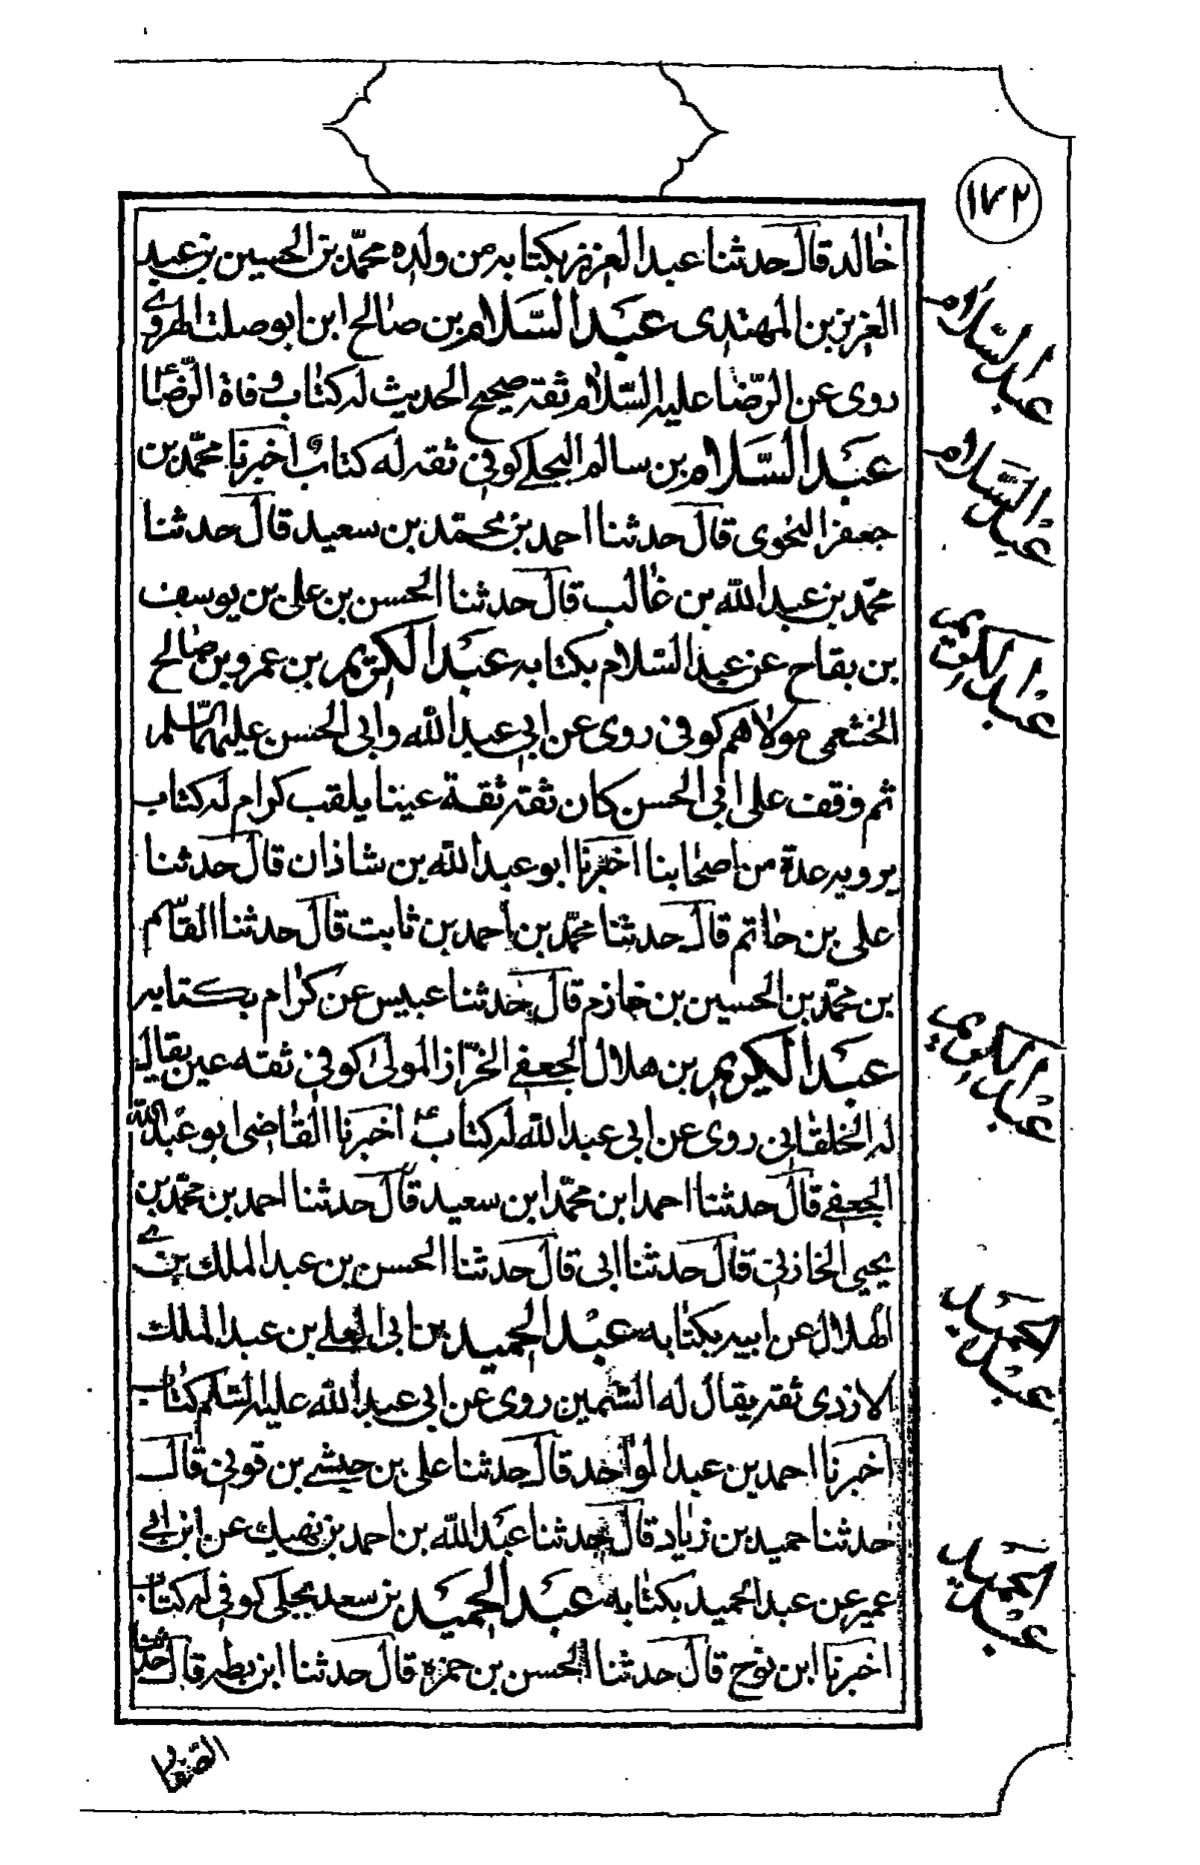 ١٧٢
خالد قال حدثنا عبد العزيز بكتابه من ولده محمّد بن الحسين بن عبد
العزيز بن المهتدى عبد السّلام بن صالح ابن ابو صلت الهروى
روى عن الرّضا عليه السّلام ثقة صحيح الحديث له كتاب وفاة الرّضا ع
عبد السّلام بن سالم البجلى كوفى ثقه له كتاب اخبرنا محمّد بن
جعفر النحوى قال حدثنا احمد بن محمّد بن سعيد قال حدثنا
محمّد بن عبد الله بن غالب قال حدثنا الحسن بن على بن يوسف
بن بقاح عن عبد السّلام بكتابه عبد الكريم بن عمرو بن صالح
الخثعمى مولاهم كوفى روى عن ابى عبد الله وابى الحسن عليهما السّلم
ثم وقف على ابى الحسن كان ثقة ثقة عينا يلقب كرام له كتاب
يرويه عدة من اصحابنا اخبرنا ابو عبد الله بن شاذان قال حدثنا
على بن حاتم قال حدثنا محمّد بن احمد بن ثابت قال حدثنا القاسم
بن محمّد بن الحسين بن خازم قال حدثنا عبيس عن كرام بكتابه
عبد الكريم بن هلال الجعفى الخزّاز المولى كوفى ثقه عين يقال
له الخلقانى روى عن ابى عبد الله له كتاب ع اخبرنا القاضى ابو عبد الله
الجعفى قال حدثنا احمد ابن محمّد ابن سعيد قال حدثنا احمد بن محمّد بن
يحيى الخازنى قال حدثنا ابى قال حدثنا الحسن بن عبد الملك بن
الهلال عن ابيه بكتابه عبد الحميد بن ابى العلى بن عبد الملك
الازدى ثقة يقال له السّمين روى عن ابى عبد الله عليه السّلم كتاب
اخبرنا احمد بن عبد الواحد قال حدثنا على بن حبشى بن قونى قال
حدثنا حميد بن زياد قال حدثنا عبد الله بن احمد بن نهيك عن ابن ابى
عمير عن عبد الحميد بكتابه عبد الحميد بن سعد بجلى كوفى له كتاب
اخبرنا ابن نوح قال حدثنا الحسن بن حمزه قال حدثنا ابن بطه قال حدثنا
الصّفار
عبد السّلام
عبد السّلام
عبد الكريم
عبد الكريم
عبد الحميد
عبد الحميد